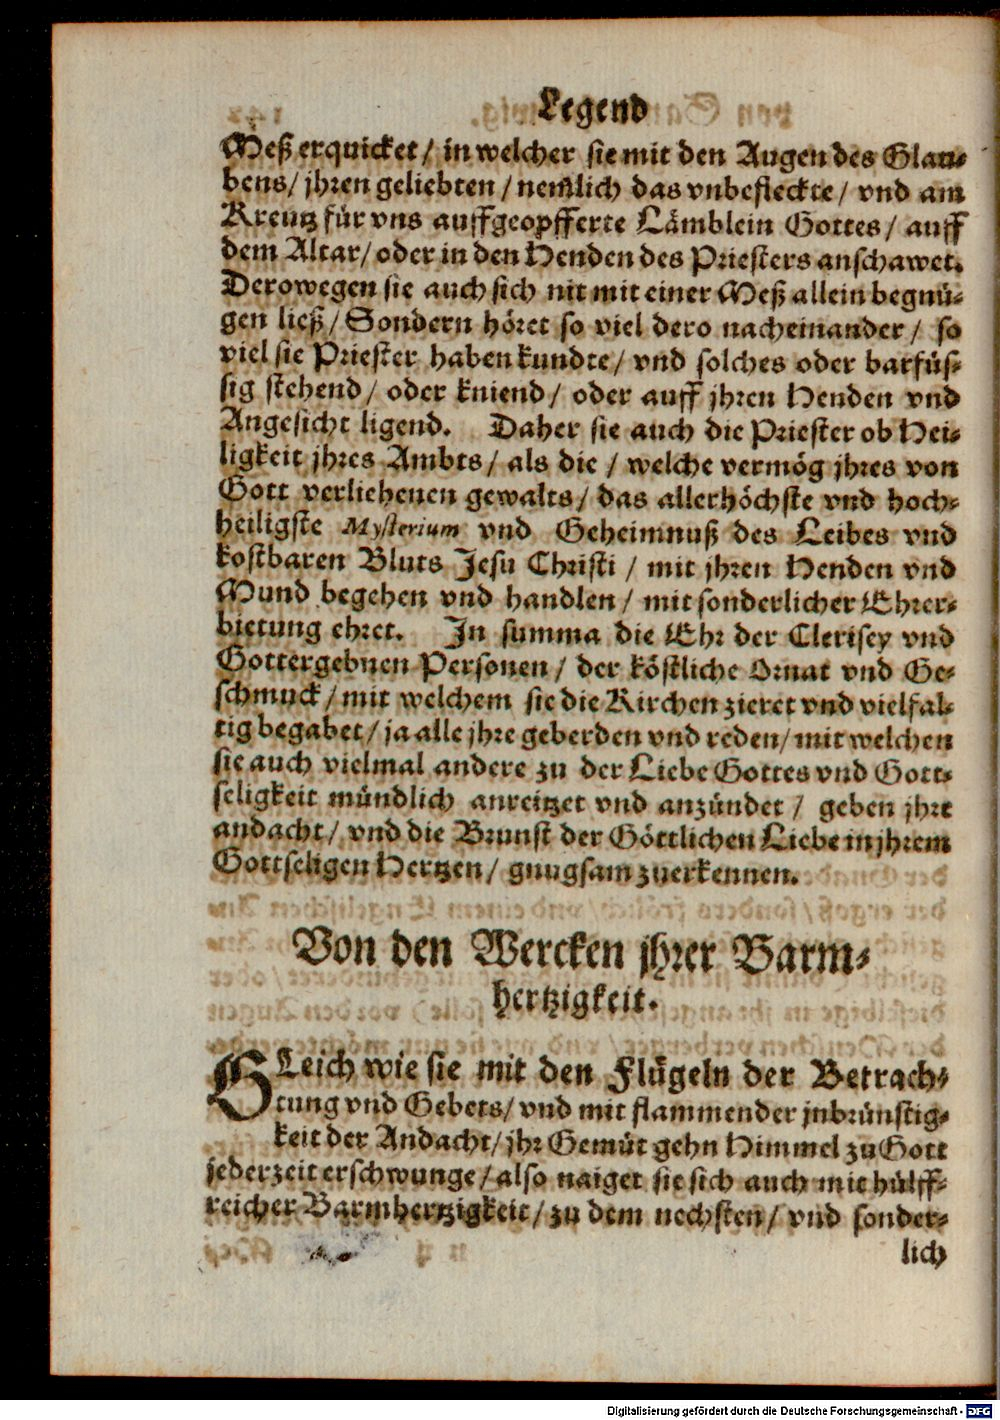 Legend
Meß erquicket / in welcher sie mit den Augen des Glau-
bens / jhren geliebten / nemlich das vnbefleckte / vnd am
Kreutz für vns auffgeopfferte Lämblein Gottes / auff
dem Altar / oder in den Henden des Priesters anschawet.
Derowegen sie auch sich nit mit einer Meß allein begnü-
gen ließ / Sondern höret so viel dero nacheinander / so
viel sie Priester haben kundte / vnd solches oder barfüs-
sig stehend / oder kniend / oder auff jhren Henden vnd
Angesicht ligend. Daher sie auch die Priester ob Hei-
ligkeit jhres Ambts / als die / welche vermög jhres von
Gott verliehenen gewalts / das allerhöchste vnd hoch-
heiligste Mysterium vnd Geheimnuß des Leibes vnd
kostbaren Bluts Jesu Christi / mit jhren Henden vnd
Mund begehen vnd handlen / mit sonderlicher Ehrer-
bietung ehret. In summa die Ehr der Clerisey vnd
Gottergebnen Personen / der köstliche Ornat vnd Ge-
schmuck / mit welchem sie die Kirchen zieret vnd vielfal-
tig begabet / ja alle jhre geberden vnd reden / mit welchen
sie auch vielmal andere zu der Liebe Gottes vnd Gott-
seligkeit mündlich anreitzet vnd anzündet / geben jhre
andacht / vnd die Brunst der Göttlichen Liebe in jhrem
Gottseligen Hertzen / gnugsam zuerkennen.
Von den Wercken jhrer Barm-
hertzigkeit.
GLeich wie sie mit den Flügeln der Betrach-
tung vnd Gebets / vnd mit flammender jnbrünstig-
keit der Andacht / jhr Gemüt gehn Himmel zu Gott
jederzeit erschwunge / also naiget sie sich auch mit hülff-
reicher Barmhertzigkeit / zu dem nechsten / vnd sonder-
lich
Digitalisierung gefördert durch die Deutsche Forschungsgemeinschaft - DFG